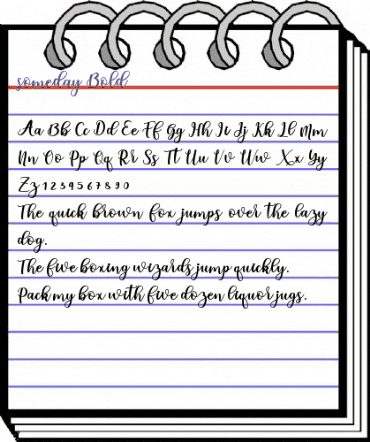 someday Bold
Aa Bb Cc Dd Ee Ff Gg Hh Ii Jj Kk Ll Mm
Nn Oo Pp Qq Rr Ss Tt Uu Vv Ww Xx Yy
Zz 1 2 3 4 5 6 7 8 9 0
The quick brown fox jumps over the lazy
dog.
The five boxing wizards jump quickly.
Pack my box with five dozen liquor jugs.